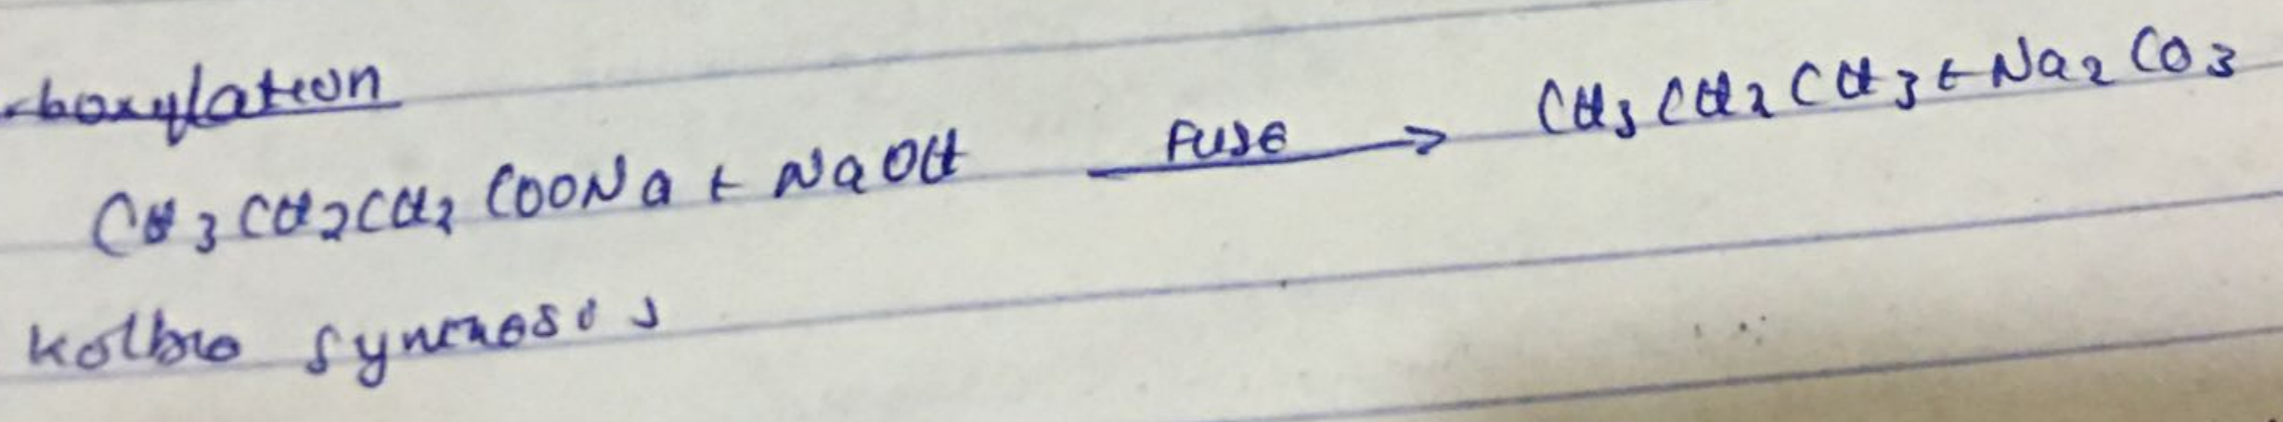 -boxylation
CH3CH2CH2COONa + NaOH —Fuse→ CH3CH2CH3 + Na2CO3
Kolbe synthesis